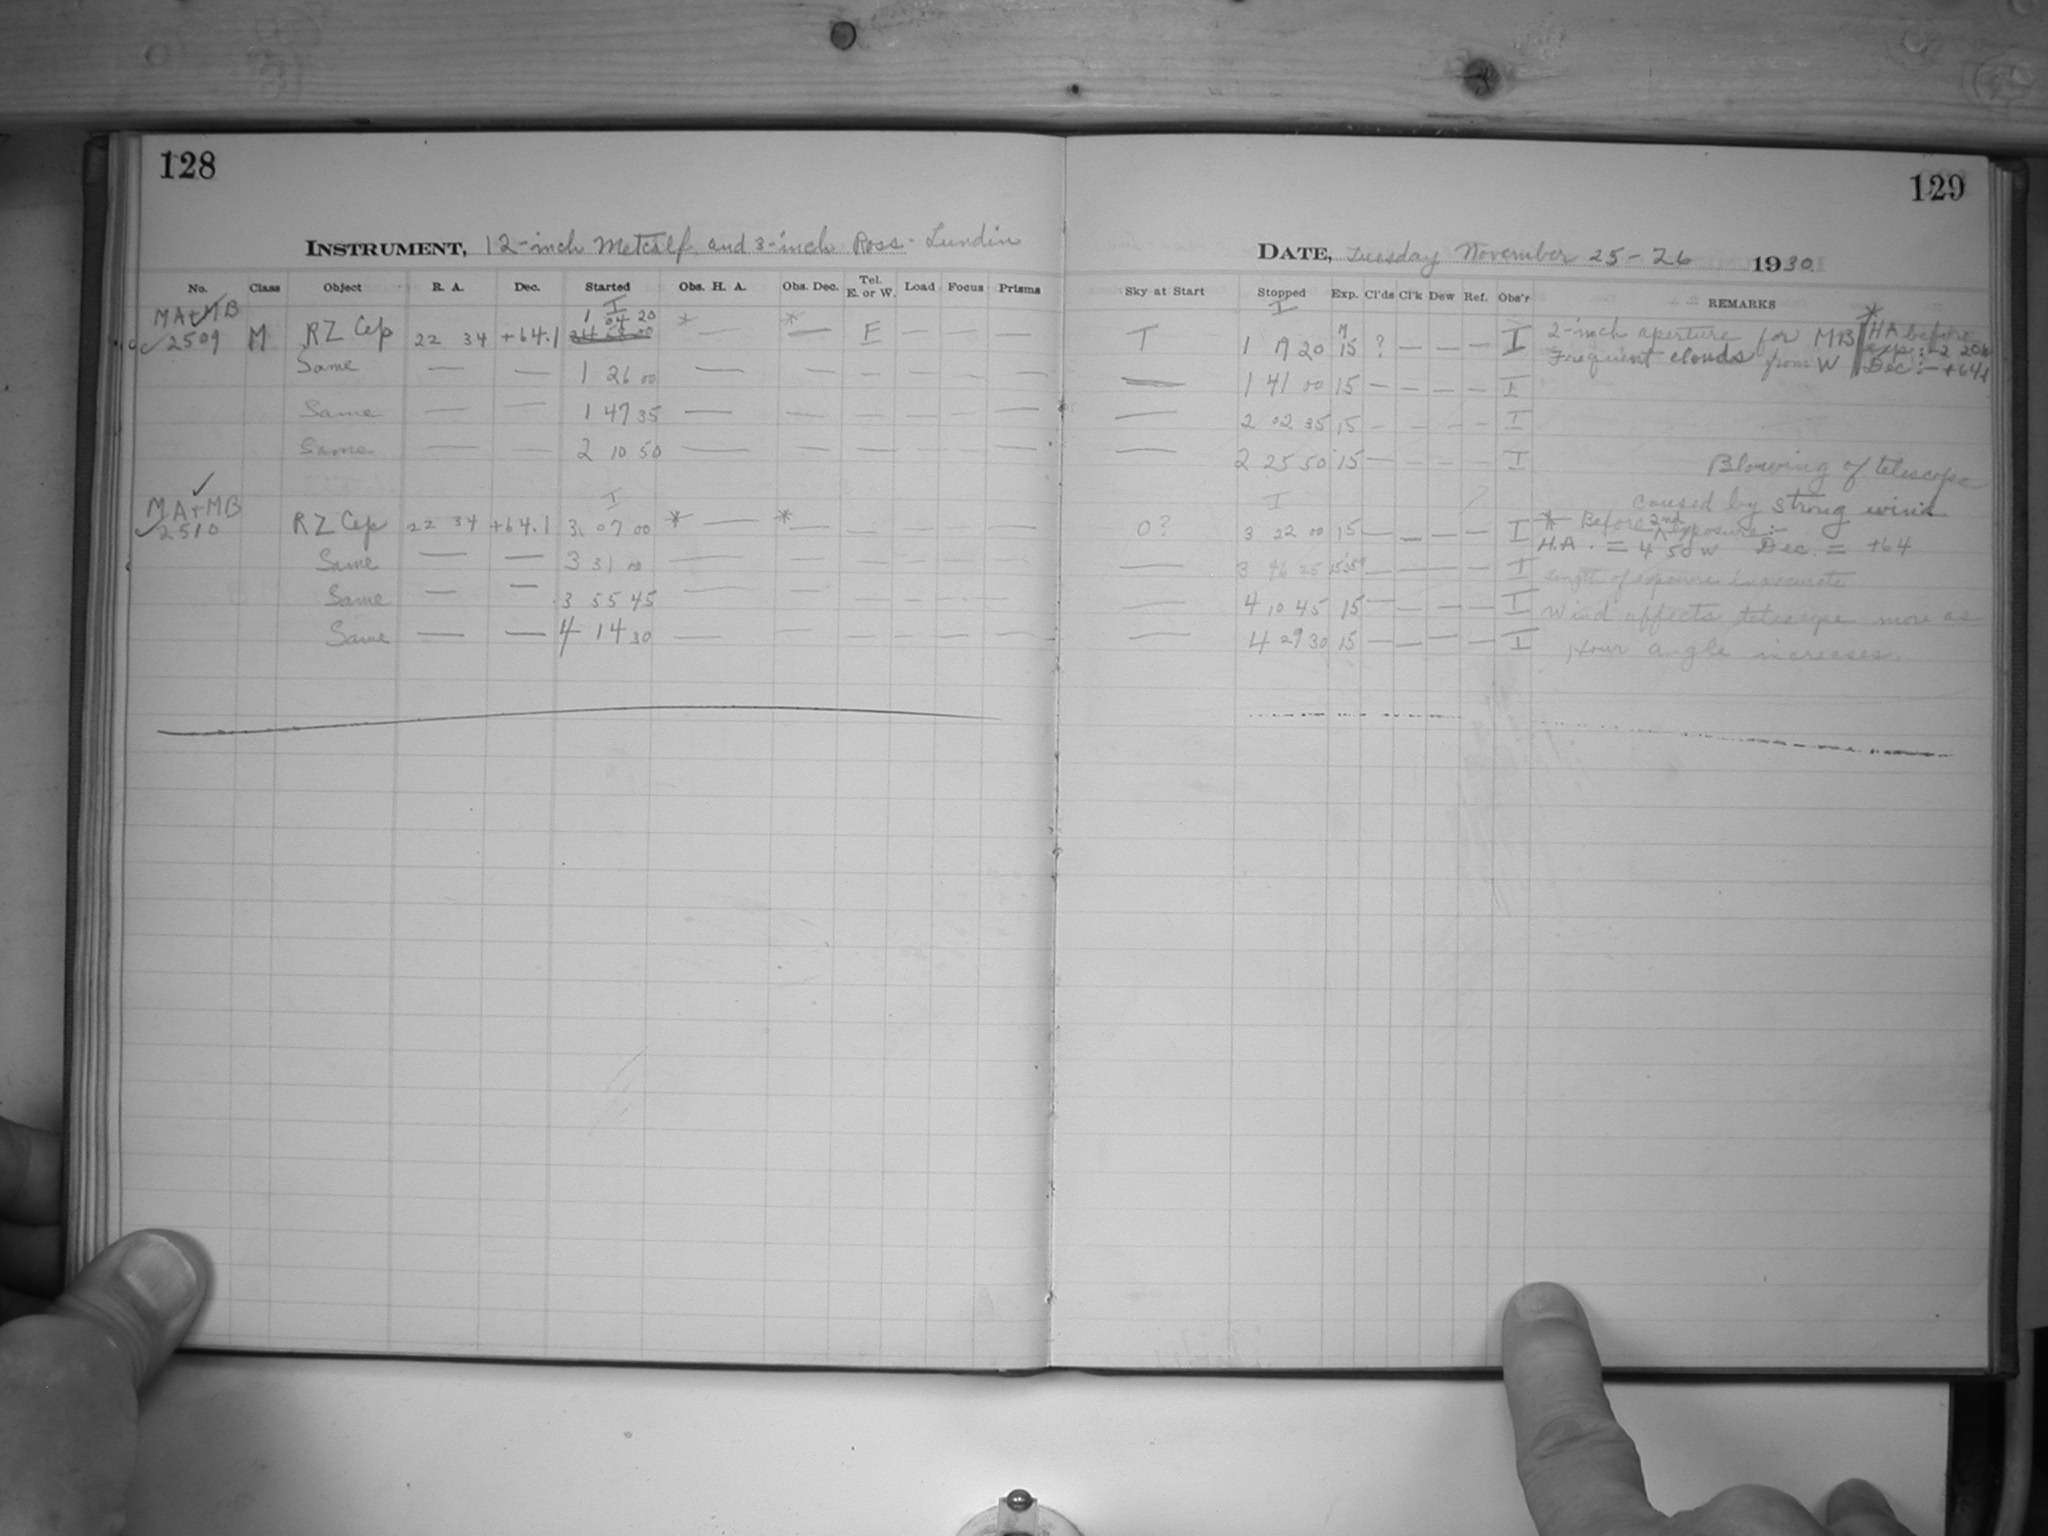 128
129
INSTRUMENT, 12-inch Metcalf and 3-inch Ross-Lundin
DATE, Tuesday November 25-26 1930
No. Class Object R. A. Dec. Started Obs. H. A. Obs. Dec. Tel. E. or W. Load Focus Prisms
Sky at Start Stopped Exp. Cl'ds Cl'k Dew Ref. Obs'r REMARKS
MA+MB I
2509 M RZ Cep 22 34 +64.1 1 04 20 * — * — E — — —
T I 1 19 20 15 ? — — — I 2-inch aperture for MB * HA before
Frequent clouds from W Dec :- +64.1
Same — — 1 26 00 — — — — — —
— 1 41 00 15 — — — — I
Same — — 1 47 35 — — — — — —
— 2 02 35 15 — — — — I
Same — — 2 10 50 — — — — — —
— 2 25 50 15 — — — — I Blowing of telescope
caused by strong wind
MA+MB I
2510 RZ Cep 22 34 +64.1 3 07 00 * — * — — — — —
O? I 3 22 00 15 — — — — I * Before 2nd exposure :-
H.A. = 4 50 W Dec. = +64
Same — — 3 31 00 — — — — — —
— 3 46 25 — — — — I length of exposure inaccurate
Same — — 3 55 45 — — — — — —
— 4 10 45 15 — — — — I Wind affects telescope more as
Same — — 4 14 30 — — — — — —
— 4 29 30 15 — — — — I hour angle increases.